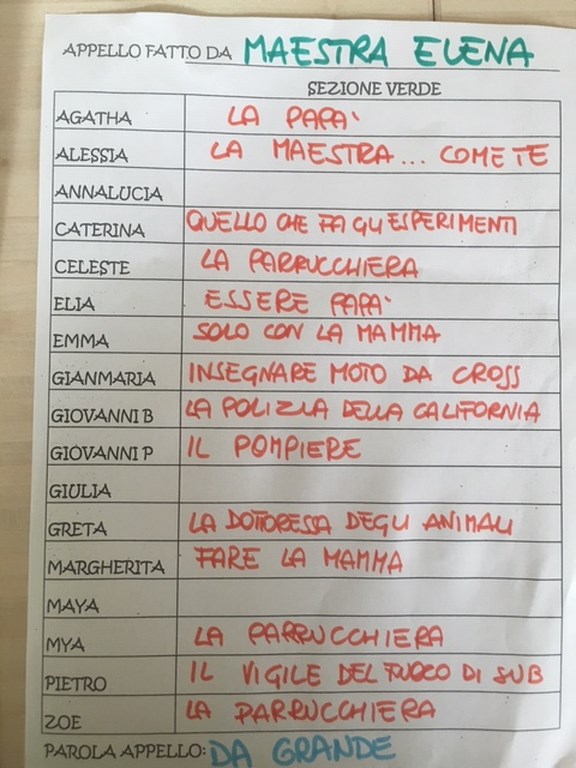 APPELLO FATTO DA MAESTRA ELENA
SEZIONE VERDE
AGATHA LA PAPA'
ALESSIA LA MAESTRA... COME TE
ANNALUCIA
CATERINA QUELLO CHE FA GLI ESPERIMENTI
CELESTE LA PARRUCCHIERA
ELIA ESSERE PAPA'
EMMA SOLO CON LA MAMMA
GIANMARIA INSEGNARE MOTO DA CROSS
GIOVANNI B LA POLIZIA DELLA CALIFORNIA
GIOVANNI P IL POMPIERE
GIULIA
GRETA LA DOTTORESSA DEGLI ANIMALI
MARGHERITA FARE LA MAMMA
MAYA
MYA LA PARRUCCHIERA
PIETRO IL VIGILE DEL FUOCO DI SUB
ZOE LA PARRUCCHIERA
PAROLA APPELLO: DA GRANDE